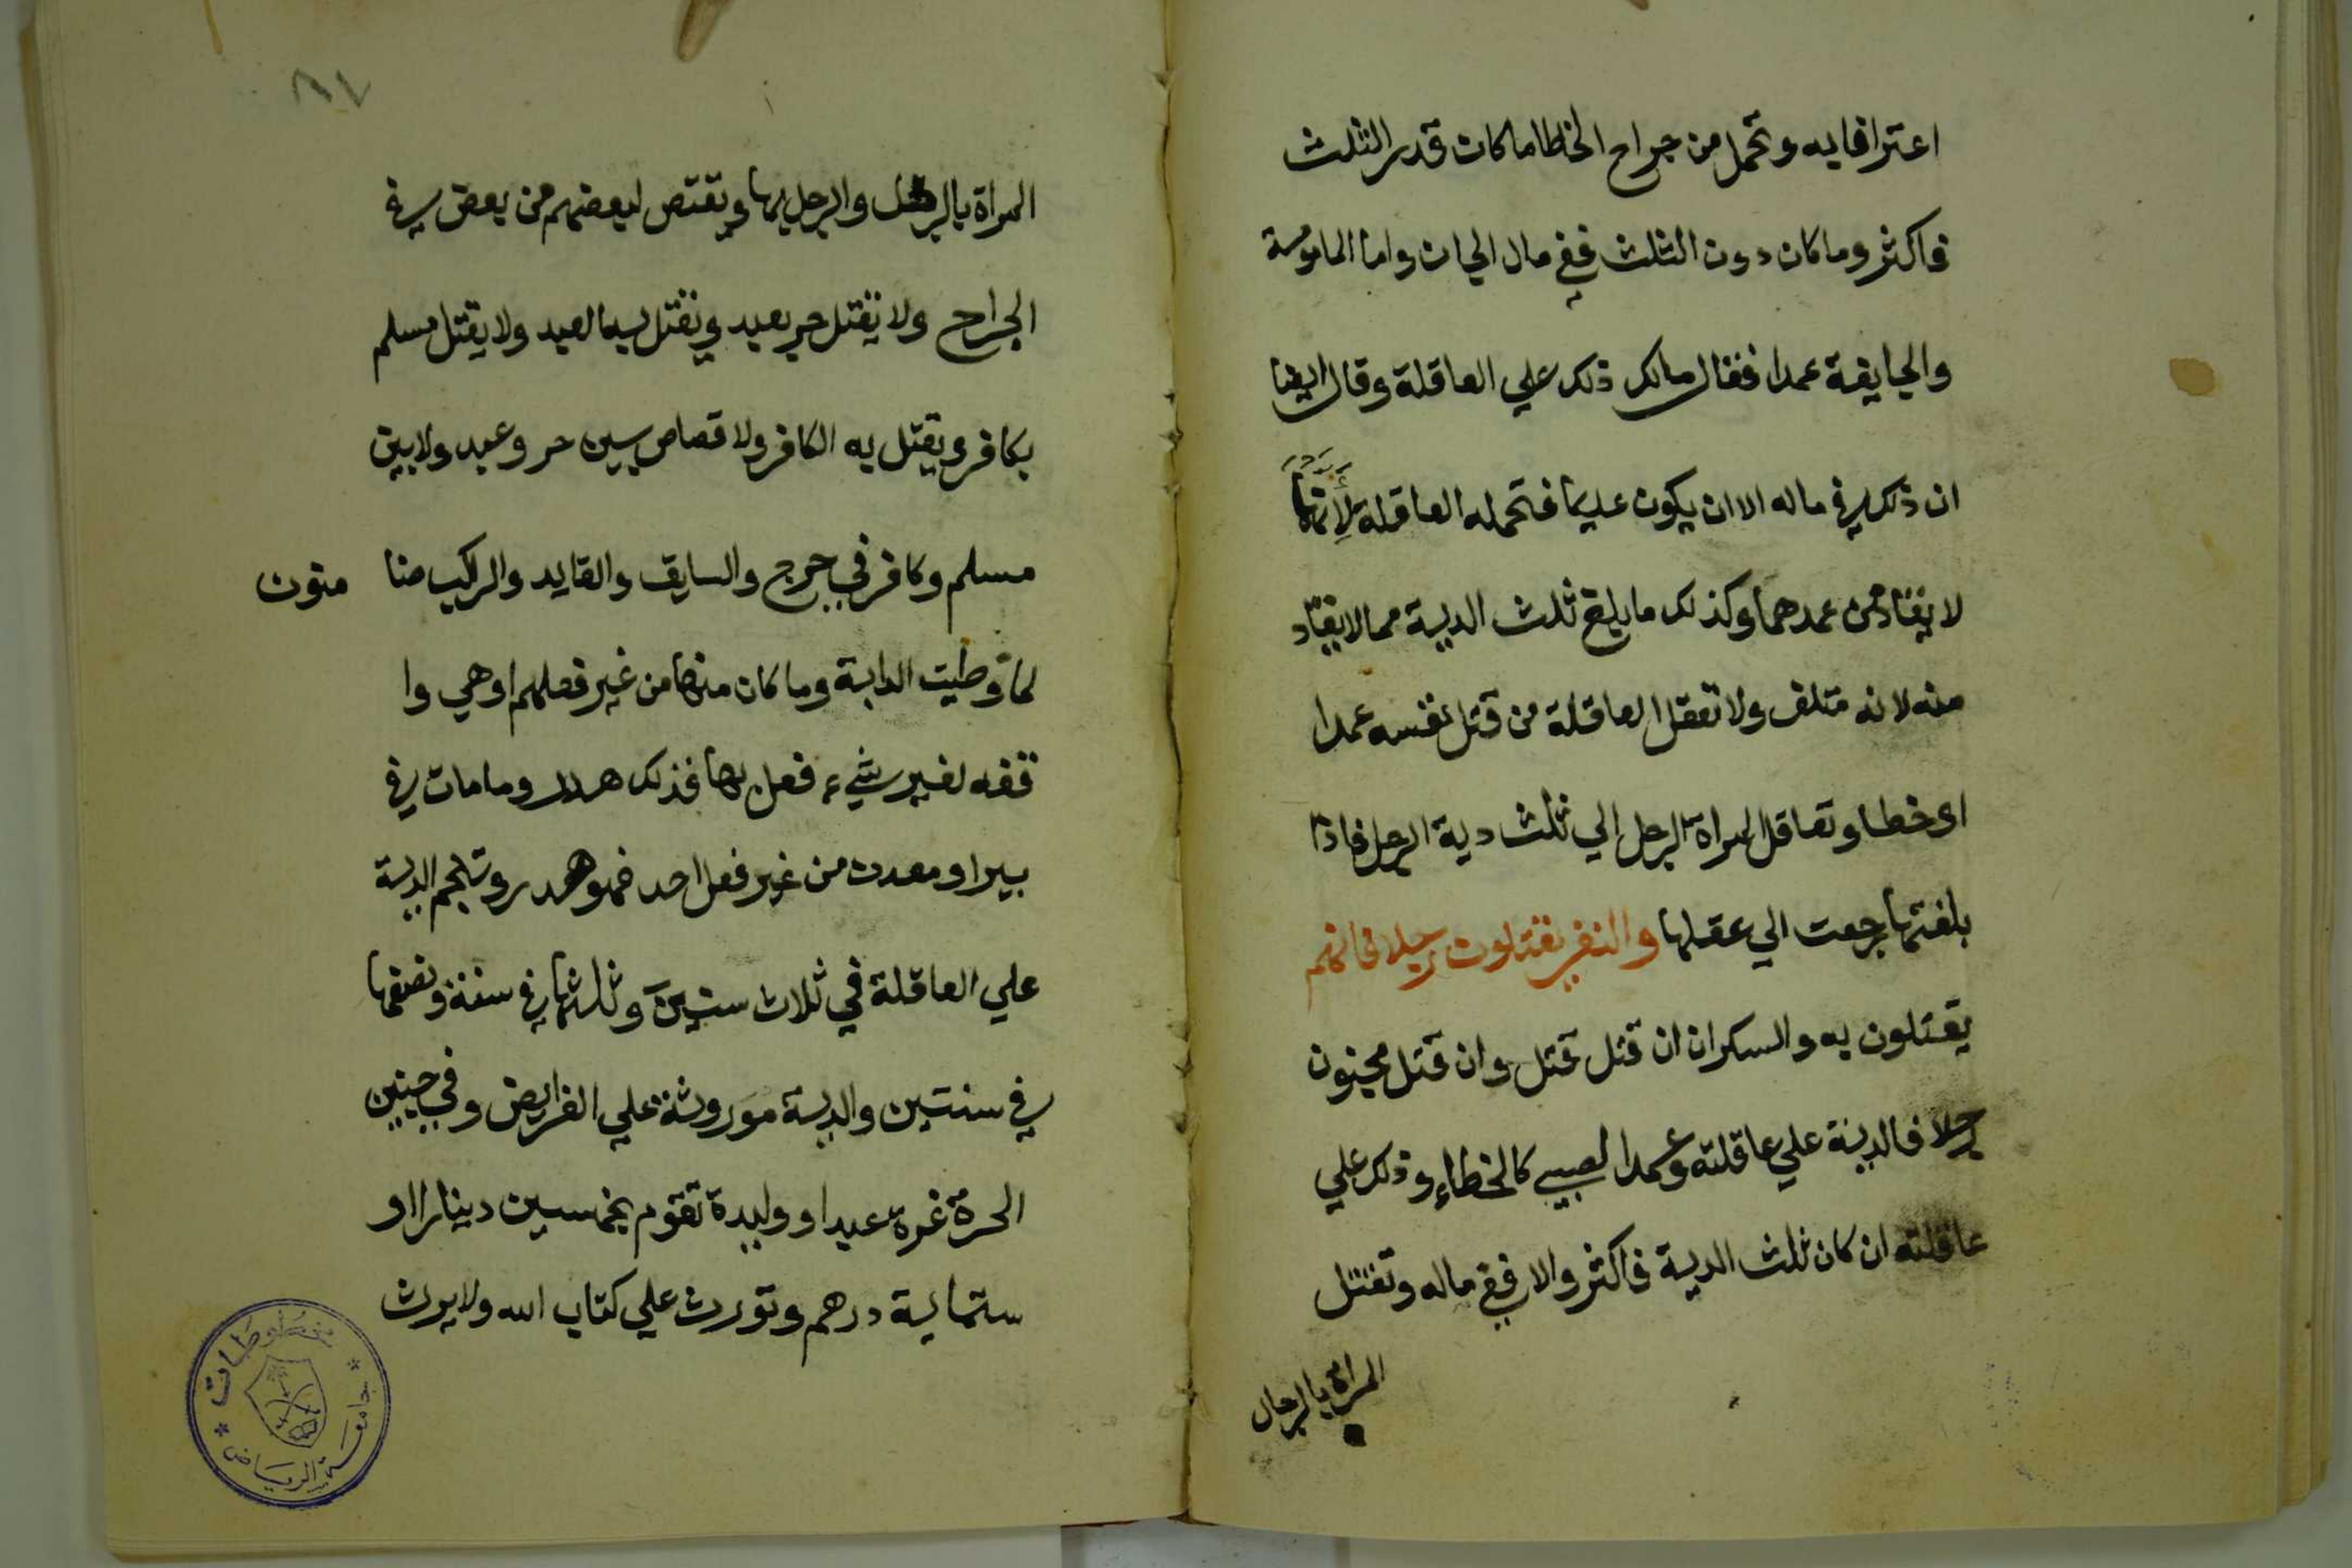 اعترافا به وتحمل من جراح الخطا ما كان قدر الثلث
فاكثر وما كان دون الثلث ففي مال الجاني واما المامومة
والجايفة عمدا فقال مالك ذلك علي العاقلة وقال ايضا
ان ذلك في ماله الا ان يكون عديما فتحمله العاقلة لأنهما
لا يقاد من عمدهما وكذلك ما بلغ ثلث الدية مما لا يقاد
منه لانه متلف ولا تعقل العاقلة من قتل نفسه عمدا
او خطا وتعاقل المراة الرجل الي ثلث دية الرجل فاذا
بلغتها رجعت الي عقلها والنفر يقتلون رجلا فانهم
يقتلون به والسكران ان قتل قتل وان قتل مجنون
رجلا فالدية علي عاقلته وعمد الصبي كالخطاء وذلك علي
عاقلته ان كان ثلث الدية فاكثر والا ففي ماله وتقتل
المراة بالرجل
٨٧
المراة بالرجل والرجل بها ويقتص لبعضهم من بعض في
الجراح ولا يقتل حر بعبد ويقتل به العبد ولا يقتل مسلم
بكافر ويقتل به الكافر ولا قصاص بين حر وعبد ولا بين
مسلم وكافر في جرح والسايق والقايد والراكب ضا منون
لما وطيت الدابة وما كان منها من غير فعلهم او هي وا
قفه لغير شيء فعل بها فذلك هدر وما مات في
بير او معدن من غير فعل احد فهو هدر وتنجم الدية
علي العاقلة في ثلاث سنين وثلثها في سنة ونصفها
في سنتين والدية موروثة علي الفرايض وفي جنين
الحرة غرة عبد او وليدة تقوم بخمسين دينارا او
ستماية درهم وتورث علي كتاب الله ولا يرث
مخطوطات
جامعة الرياض